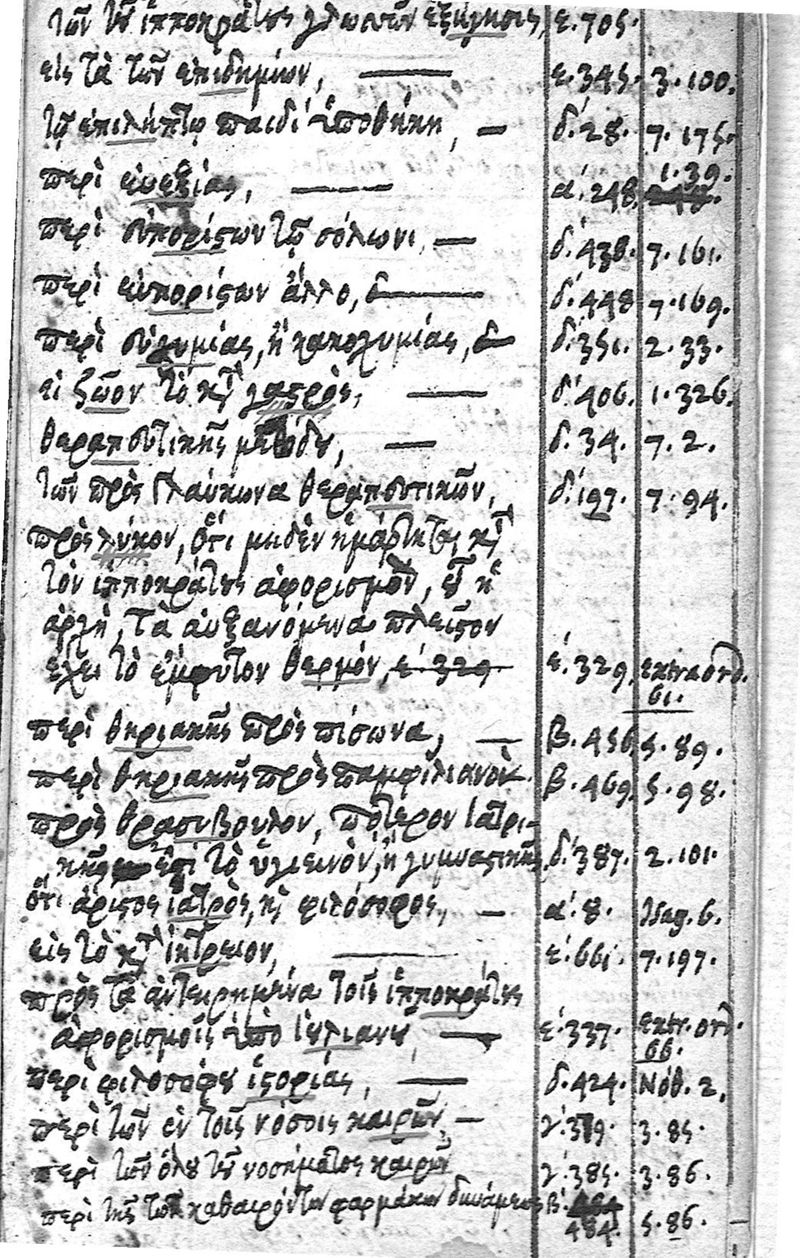 τῶν τοῦ ἱπποκράτους γλωσσῶν ἐξήγησις, ε. 705.
εἰς τὰ τῶν ἐπιδημίων, — ε. 345. 3. 100.
τῷ ἐπιλήπτῳ παιδὶ ὑποθήκη, — δ. 28. 7. 175.
περὶ εὐεξίας, — α. 248. 1. 39.
περὶ εὐπορίστων τῷ σόλωνι, — δ. 438. 7. 161.
περὶ εὐπορίστων ἄλλο, — δ. 448 7. 169.
περὶ εὐχυμίας, ἢ κακοχυμίας, — δ. 351. 2. 33.
εἰ ζῶον τὸ κατὰ γαστρὸς, — δ. 406. 1. 326.
θεραπευτικῆς μεθόδου, — δ. 34. 7. 2.
τῶν πρὸς Γλαύκωνα θεραπευτικῶν, δ. 197. 7. 94.
πρὸς λύκον, ὅτι μηδὲν ἡμάρτηται κατὰ
τὸν ἱπποκράτους ἀφορισμὸν, οὗ ἡ
ἀρχὴ, τὰ αὐξανόμενα πλεῖστον
ἔχει τὸ ἔμφυτον θερμόν, ε. 329 ε. 329. extraord. 61.
περὶ θηριακῆς πρὸς πίσωνα, — β. 456. 5. 89.
περὶ θηριακῆς πρὸς παμφιλιανὸν. β. 469. 5. 98.
πρὸς θρασύβουλον, πότερον ἰατρι-
κῆς ἐστι τὸ ὑγιεινὸν, ἢ γυμναστικῆς, δ. 387. 2. 101.
ὅτι ἄριστος ἰατρὸς, καὶ φιλόσοφος, — α. 8. Isag. 6.
εἰς τὸ κατ' ἰητρεῖον, — ε. 661. 7. 197.
πρὸς τὰ ἀντειρημένα τοῖς ἱπποκράτους
ἀφορισμοῖς ὑπὸ ἰουλιανοῦ, — ε. 337. extr. ord. 66.
περὶ φιλοσόφου ἱστορίας, — δ. 424. Νόθ. 2.
περὶ τῶν ἐν τοῖς νόσοις καιρῶν, — γ. 379. 3. 85.
περὶ τῶν ὅλου τοῦ νοσήματος καιρῶν γ. 385. 3. 86.
περὶ τῆς τῶν καθαιρόντων φαρμάκων δυνάμεως β. 484. 5. 86.